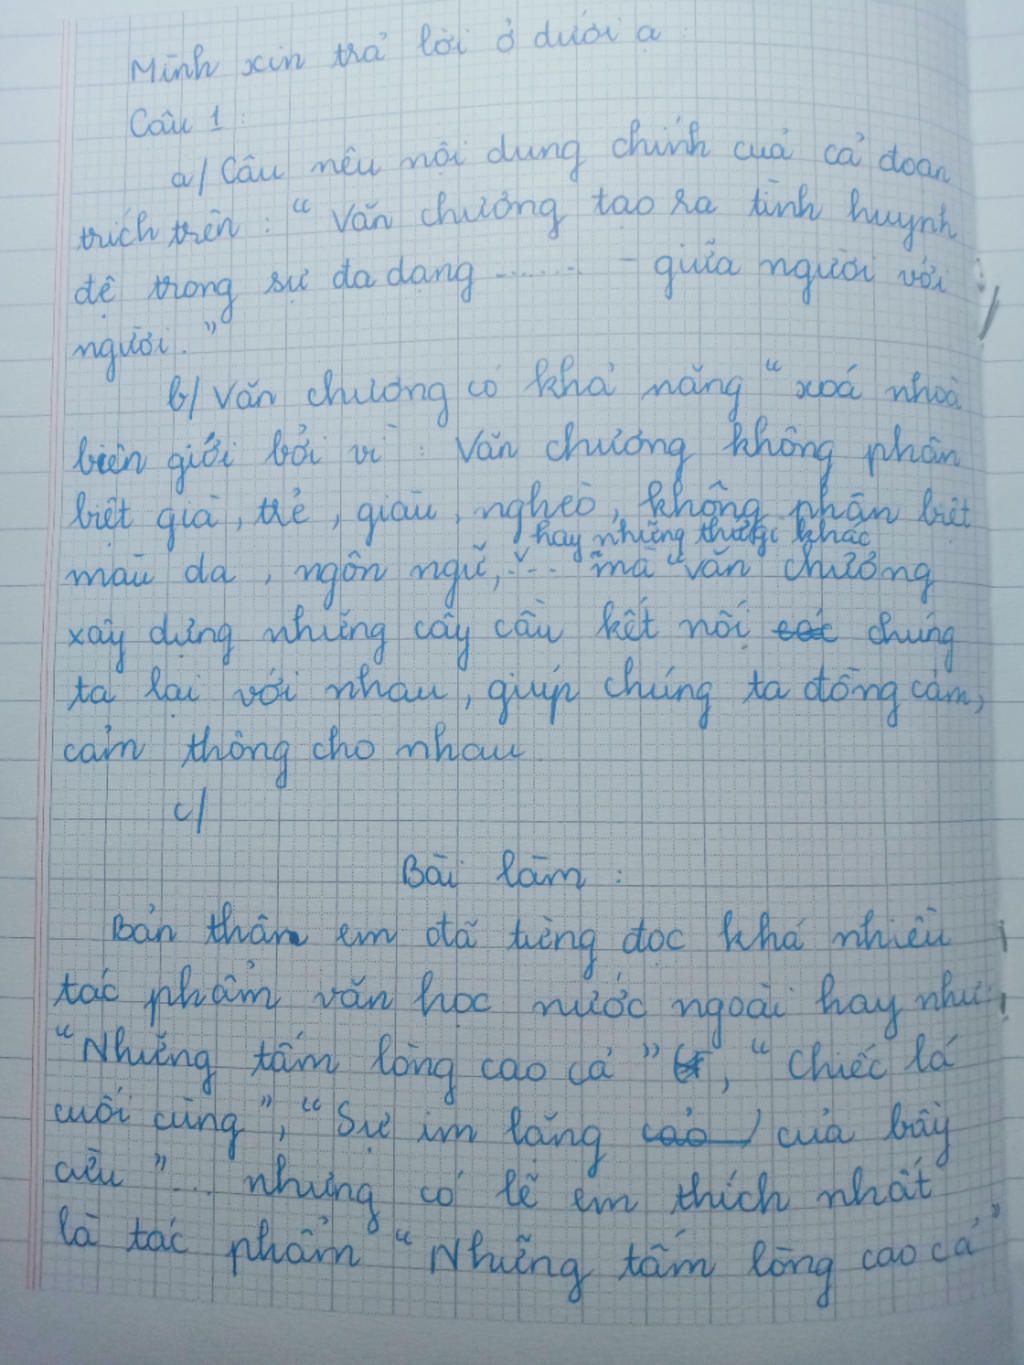 Mình xin trả lời ở dưới ạ :
Câu 1 :
a/ Câu nêu nội dung chính cuả cả đoạn
trích trên : " Văn chương tạo ra tình huynh
đệ trong sự đa dạng ......... - giữa người với
người. "
b/ Văn chương có khả năng " xoá nhoà
biên giới bởi vì : Văn chương không phân
biệt già, trẻ, giàu, nghèo, không phân biệt
hay những thứ khác
màu da, ngôn ngữ, ... mà văn chương
xây dựng những cây cầu kết nối chúng
ta lại với nhau, giúp chúng ta đồng cảm,
cảm thông cho nhau
c/
Bài làm :
Bản thân em đã từng đọc khá nhiều
tác phẩm văn học nước ngoài hay như:
" Những tấm lòng cao cả ", " Chiếc lá
cuối cùng ", " Sự im lặng của bầy
cừu " ... nhưng có lẽ em thích nhất
là tác phẩm " Những tấm lòng cao cả "